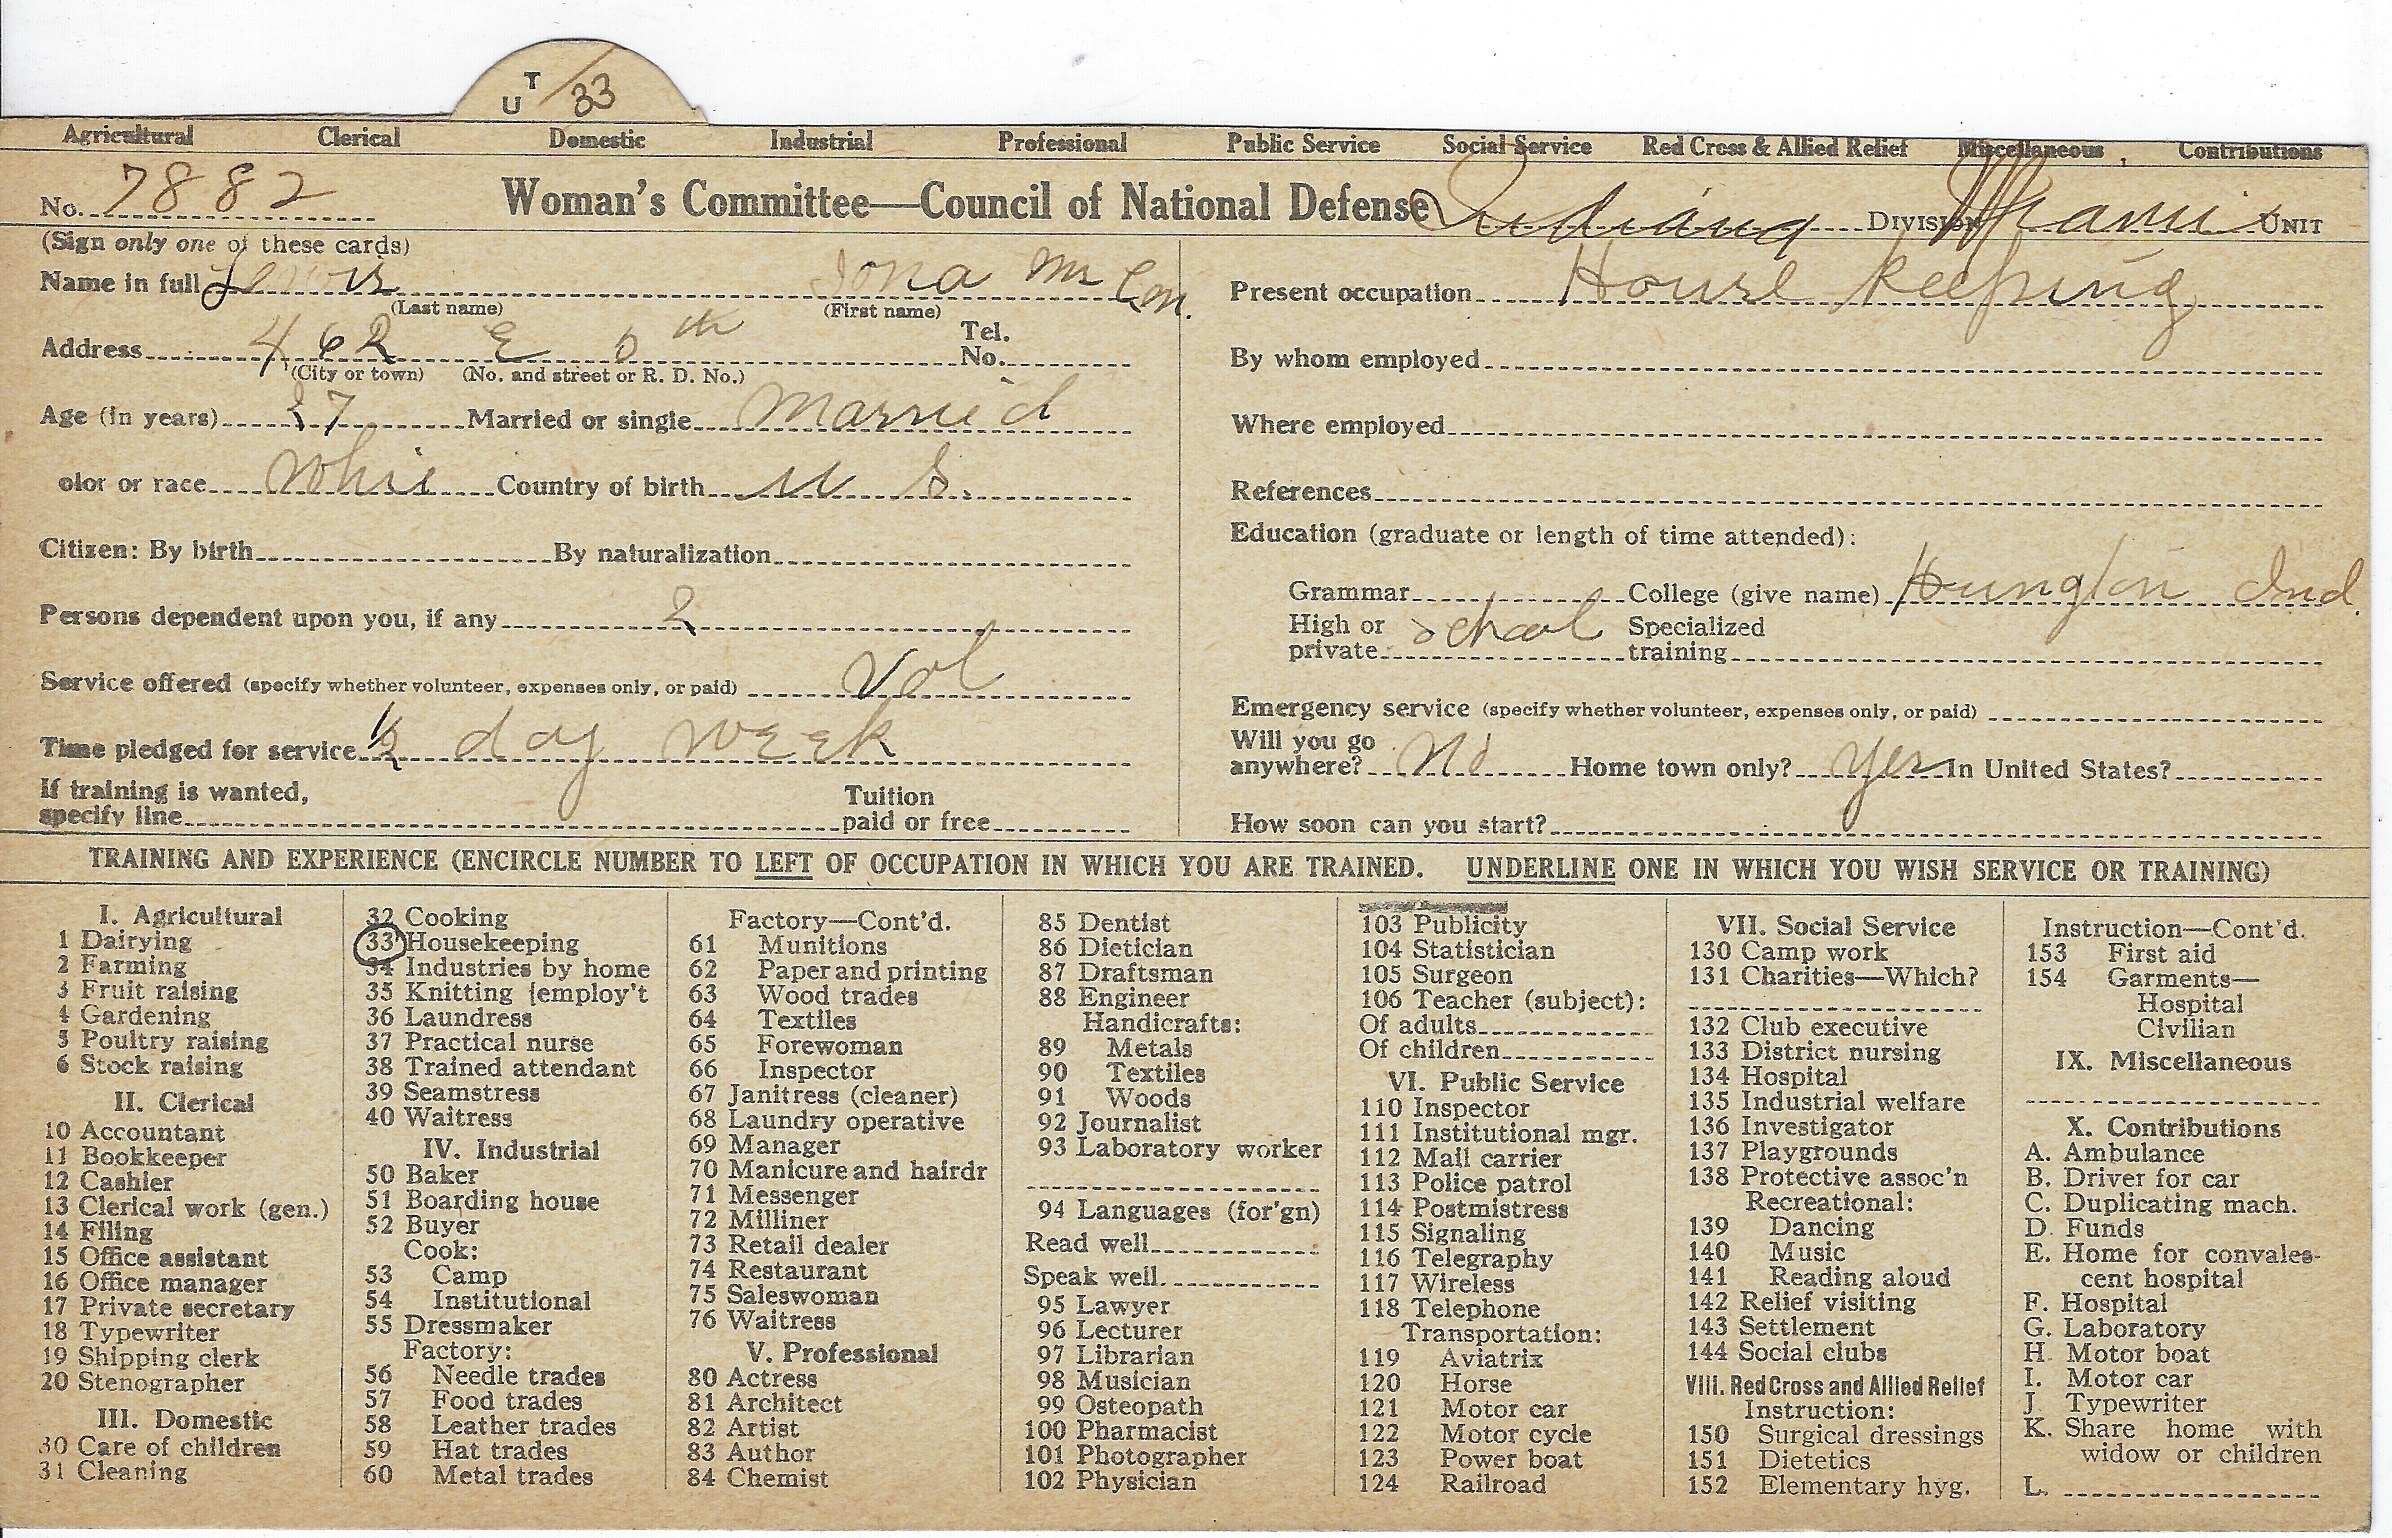 U T / 33
Agricultural Clerical Domestic Industrial Professional Public Service Social Service Red Cross & Allied Relief Miscellaneous Contributions
No. 7882 Woman's Committee—Council of National Defense Indiana DIVISION Miami UNIT
(Sign only one of these cards)
Name in full Lewis Iona Mrs
(Last name) (First name)
Address 462 E 5th Tel. No.
(City or town) (No. and street or R. D. No.)
Age (in years) 37 Married or single Married
olor or race Whie Country of birth U S.
Citizen: By birth By naturalization
Persons dependent upon you, if any 2
Service offered (specify whether volunteer, expenses only, or paid) Vol
Time pledged for service 1/2 day week
If training is wanted,
specify line Tuition paid or free
Present occupation House keeping
By whom employed
Where employed
References
Education (graduate or length of time attended):
Grammar College (give name) Hungton Ind.
High or private school Specialized training
Emergency service (specify whether volunteer, expenses only, or paid)
Will you go anywhere? No Home town only? yes In United States?
How soon can you start?
TRAINING AND EXPERIENCE (ENCIRCLE NUMBER TO LEFT OF OCCUPATION IN WHICH YOU ARE TRAINED. UNDERLINE ONE IN WHICH YOU WISH SERVICE OR TRAINING)
I. Agricultural
1 Dairying
2 Farming
3 Fruit raising
4 Gardening
5 Poultry raising
6 Stock raising
II. Clerical
10 Accountant
11 Bookkeeper
12 Cashier
13 Clerical work (gen.)
14 Filing
15 Office assistant
16 Office manager
17 Private secretary
18 Typewriter
19 Shipping clerk
20 Stenographer
III. Domestic
30 Care of children
31 Cleaning
32 Cooking
33 Housekeeping
34 Industries by home
35 Knitting [employ't
36 Laundress
37 Practical nurse
38 Trained attendant
39 Seamstress
40 Waitress
IV. Industrial
50 Baker
51 Boarding house
52 Buyer
Cook:
53 Camp
54 Institutional
55 Dressmaker
Factory:
56 Needle trades
57 Food trades
58 Leather trades
59 Hat trades
60 Metal trades
Factory—Cont'd.
61 Munitions
62 Paper and printing
63 Wood trades
64 Textiles
65 Forewoman
66 Inspector
67 Janitress (cleaner)
68 Laundry operative
69 Manager
70 Manicure and hairdr
71 Messenger
72 Milliner
73 Retail dealer
74 Restaurant
75 Saleswoman
76 Waitress
V. Professional
80 Actress
81 Architect
82 Artist
83 Author
84 Chemist
85 Dentist
86 Dietician
87 Draftsman
88 Engineer
Handicrafts:
89 Metals
90 Textiles
91 Woods
92 Journalist
93 Laboratory worker
94 Languages (for'gn)
Read well
Speak well
95 Lawyer
96 Lecturer
97 Librarian
98 Musician
99 Osteopath
100 Pharmacist
101 Photographer
102 Physician
103 Publicity
104 Statistician
105 Surgeon
106 Teacher (subject):
Of adults
Of children
VI. Public Service
110 Inspector
111 Institutional mgr.
112 Mail carrier
113 Police patrol
114 Postmistress
115 Signaling
116 Telegraphy
117 Wireless
118 Telephone
Transportation:
119 Aviatrix
120 Horse
121 Motor car
122 Motor cycle
123 Power boat
124 Railroad
VII. Social Service
130 Camp work
131 Charities—Which?
132 Club executive
133 District nursing
134 Hospital
135 Industrial welfare
136 Investigator
137 Playgrounds
138 Protective assoc'n
Recreational:
139 Dancing
140 Music
141 Reading aloud
142 Relief visiting
143 Settlement
144 Social clubs
VIII. Red Cross and Allied Relief
Instruction:
150 Surgical dressings
151 Dietetics
152 Elementary hyg.
Instruction—Cont'd.
153 First aid
154 Garments—
Hospital
Civilian
IX. Miscellaneous
X. Contributions
A. Ambulance
B. Driver for car
C. Duplicating mach.
D. Funds
E. Home for convales-
cent hospital
F. Hospital
G. Laboratory
H. Motor boat
I. Motor car
J. Typewriter
K. Share home with
widow or children
L.